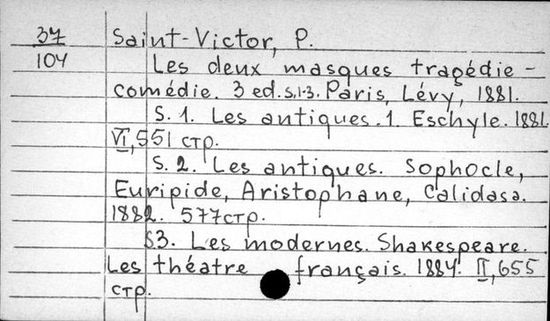 37 Saint-Victor, P.
104 Les deux masques tragédie-
comédie. 3 ed. s.1-3. Paris, Lévy, 1881.
S. 1. Les antiques. 1. Eschyle. 1881.
VI, 551 стр.
S. 2. Les antiques. Sophocle,
Euripide, Aristophane, Calidasa.
1882. 577 стр.
S3. Les modernes. Shakespeare.
Les théatre français. 1884. II, 655
стр.